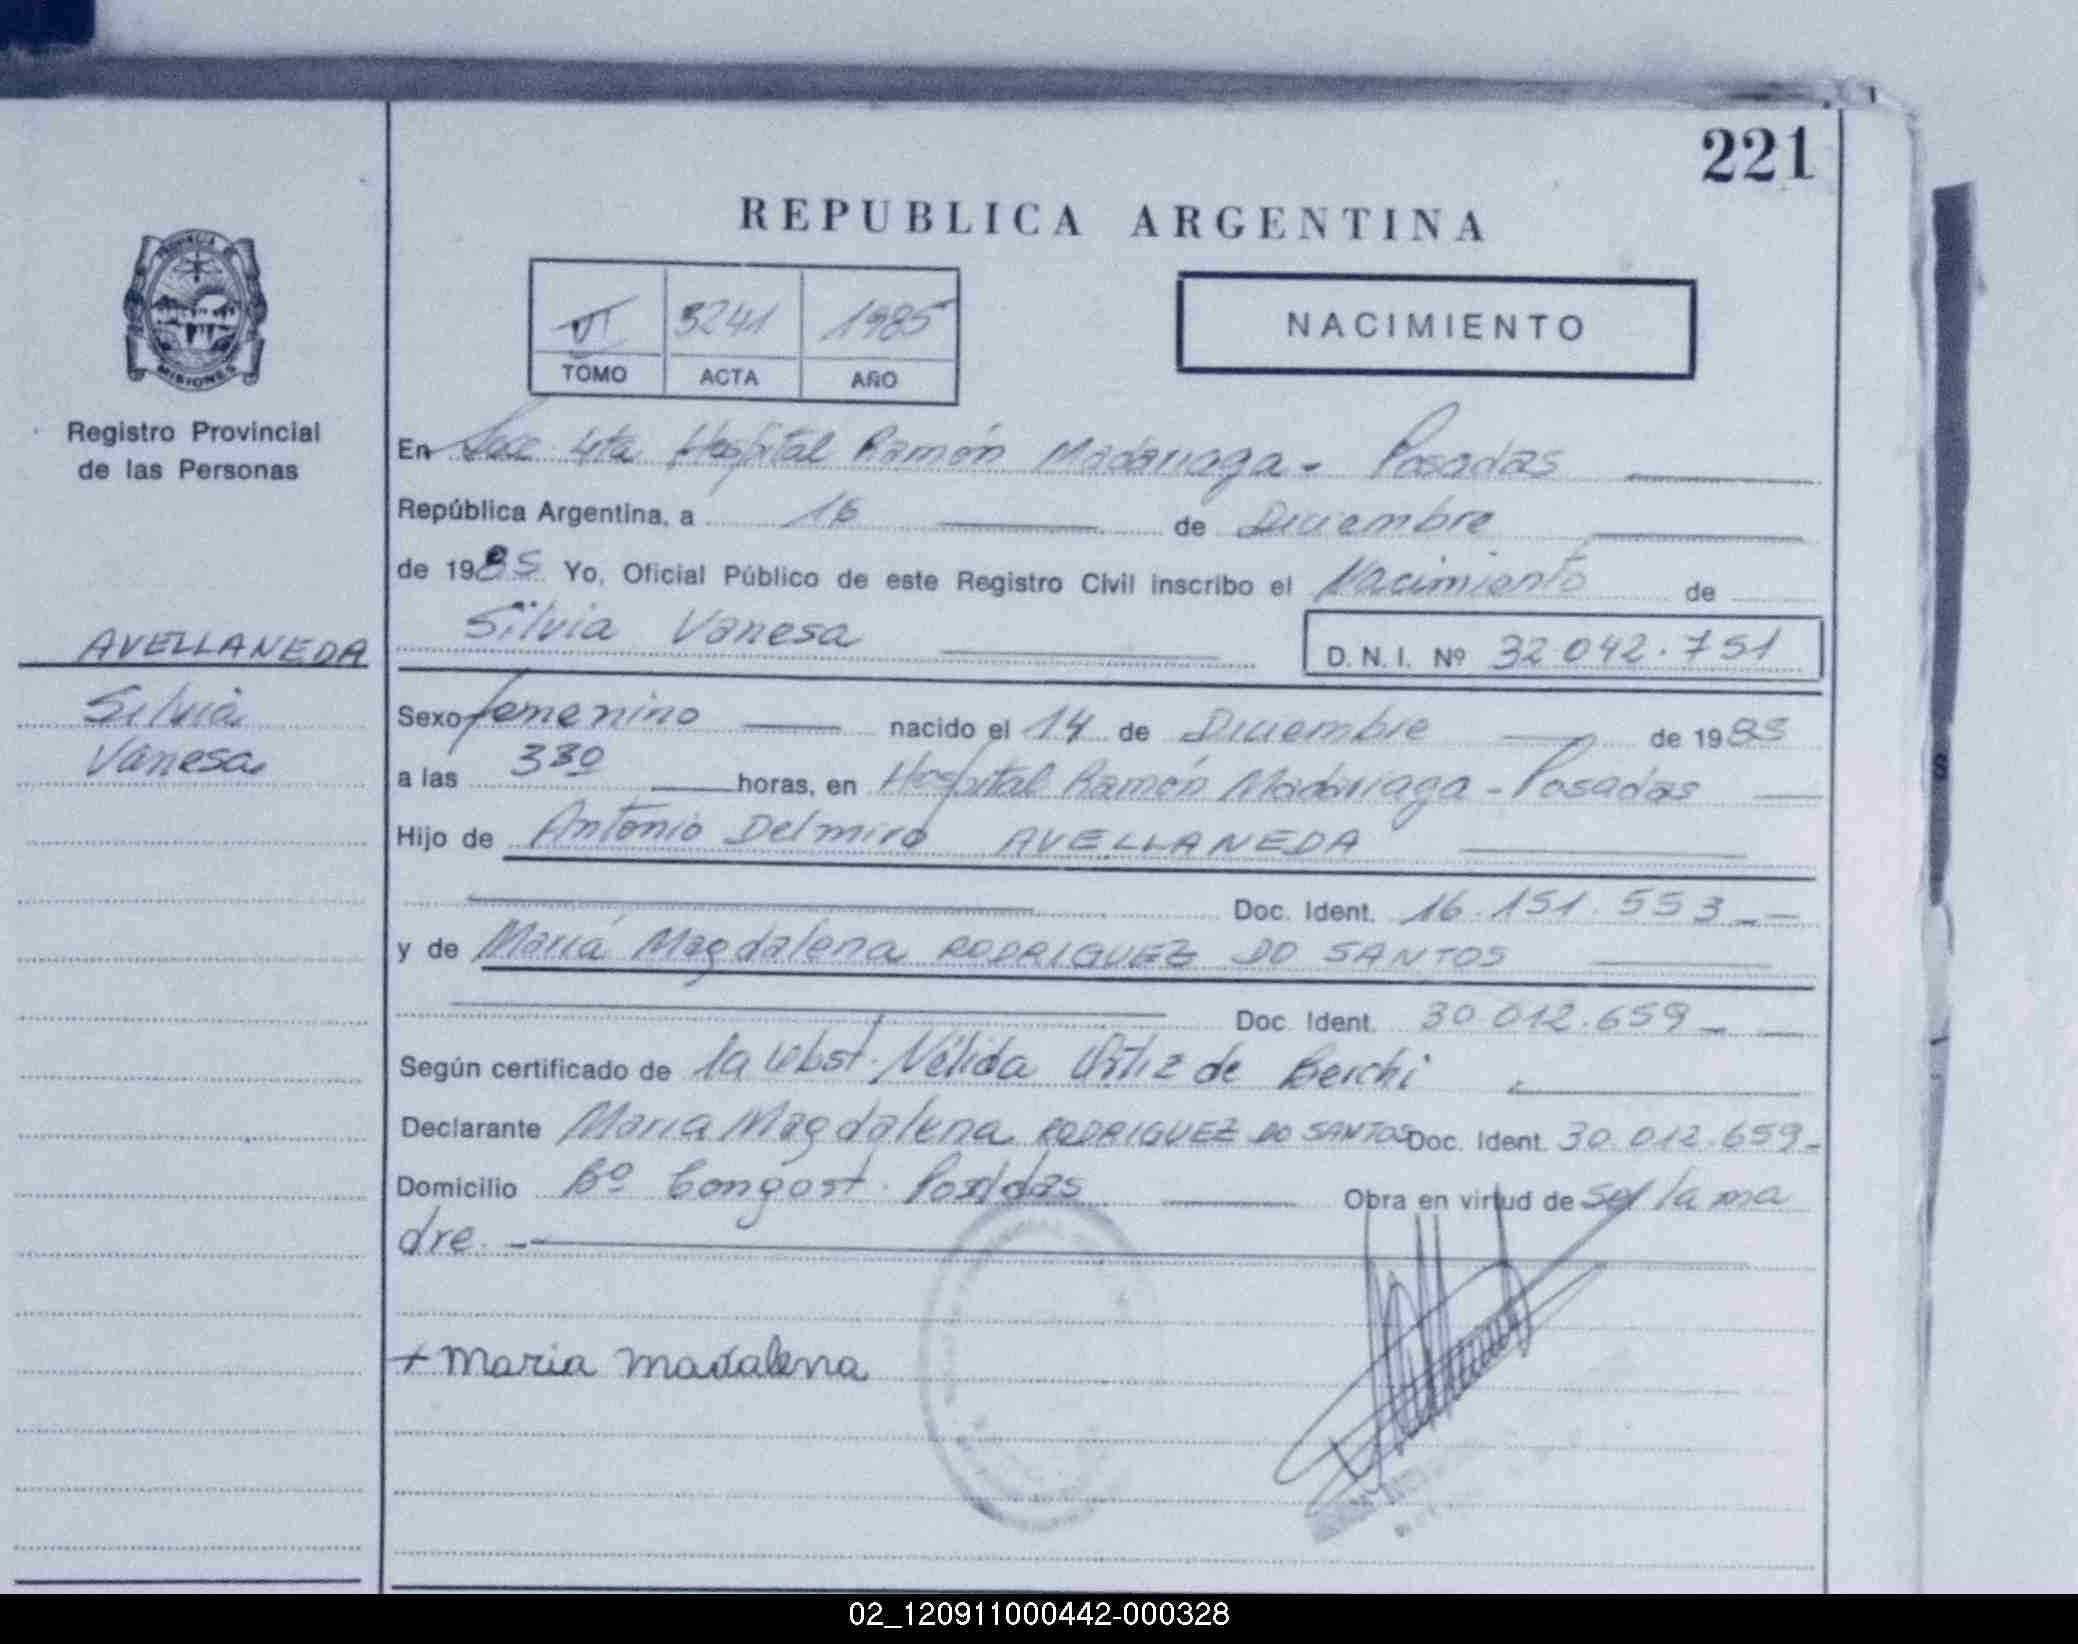 221
REPUBLICA ARGENTINA
PROVINCIA DE
MISIONES
Registro Provincial
de las Personas
VI 3241 1985
TOMO ACTA AÑO
NACIMIENTO
En Secc 4ta Hospital Ramón Madariaga - Posadas
República Argentina, a 16 de Diciembre
de 1985 Yo, Oficial Público de este Registro Civil inscribo el Nacimiento de
Silvia Vanesa D. N. I. Nº 32.042.751
AVELLANEDA
Silvia
Vanesa
Sexo femenino nacido el 14 de Diciembre de 1985
a las 3 30 horas, en Hospital Ramón Madariaga - Posadas
Hijo de Antonio Delmiro AVELLANEDA
Doc. Ident. 16.151.553
y de María Magdalena RODRIGUEZ DO SANTOS
Doc. Ident. 30.012.659
Según certificado de la Obst. Nélida Ortiz de Berchi
Declarante María Magdalena RODRIGUEZ DO SANTOS Doc. Ident. 30.012.659
Domicilio Bº Congost. Posadas Obra en virtud de ser la ma
dre.
+ Maria madalena
02_120911000442-000328